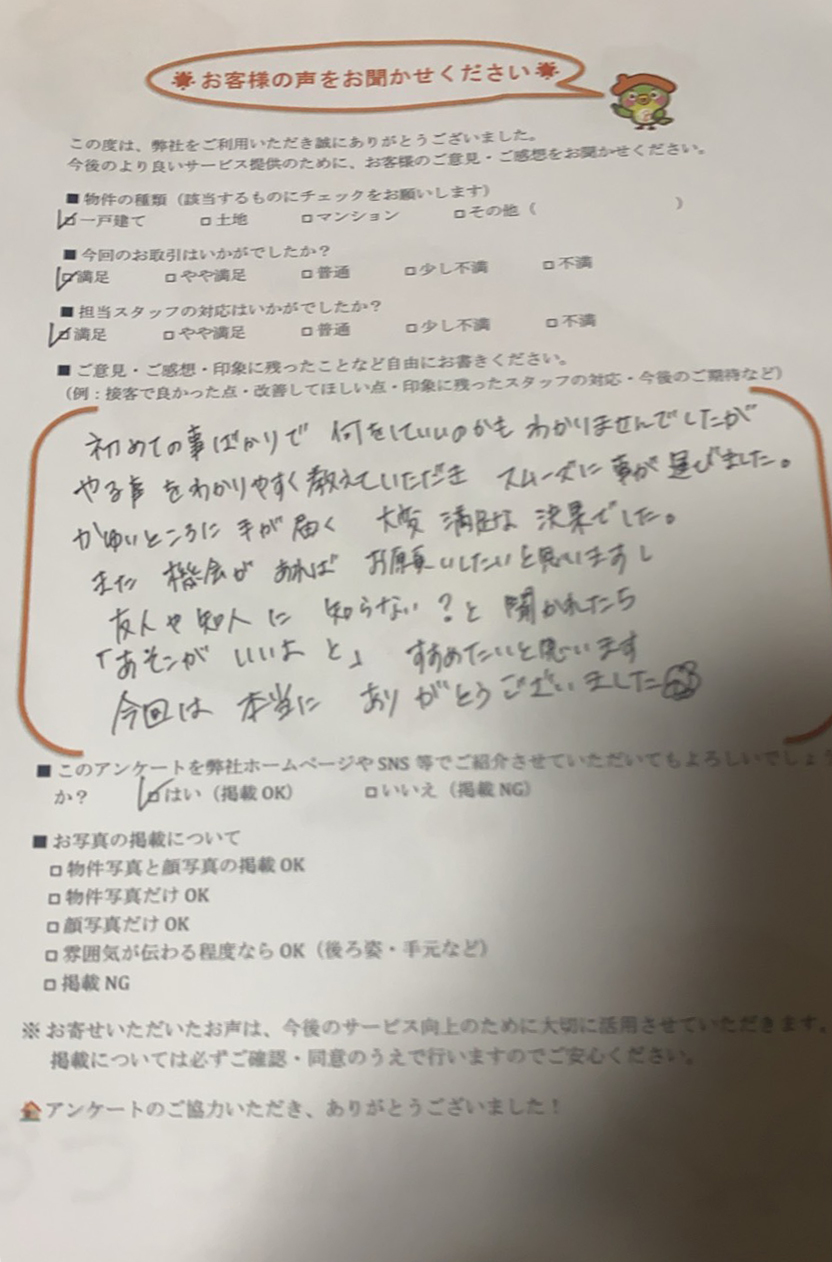 お客様の声をお聞かせください
この度は、弊社をご利用いただき誠にありがとうございました。
今後のより良いサービス提供のために、お客様のご意見・ご感想をお聞かせください。
■ 物件の種類（該当するものにチェックをお願いします）
☑一戸建て □土地 □マンション □その他（ ）
■ 今回のお取引はいかがでしたか？
☑満足 □やや満足 □普通 □少し不満 □不満
■ 担当スタッフの対応はいかがでしたか？
☑満足 □やや満足 □普通 □少し不満 □不満
■ ご意見・ご感想・印象に残ったことなど自由にお書きください。
（例：接客で良かった点・改善してほしい点・印象に残ったスタッフの対応・今後のご期待など）
初めての事ばかりで 何をしていいのかも わかりませんでしたが
やる事 をわかりやすく教えていただき スムーズに 事が 運びました。
かゆいところに 手が 届く 大変 満足な 決果でした。
また 機会が あれば お願いしたいと思いますし
友人や知人に 知らない？と 聞かれたら
「あそこが いいよ と」 すすめたいと思います
今回は 本当に ありがとうございました
■ このアンケートを弊社ホームページや SNS 等でご紹介させていただいてもよろしいでしょう
か？ ☑はい（掲載 OK） □いいえ（掲載 NG）
■ お写真の掲載について
□ 物件写真と顔写真の掲載 OK
□ 物件写真だけ OK
□ 顔写真だけ OK
□ 雰囲気が伝わる程度なら OK（後ろ姿・手元など）
□ 掲載 NG
※ お寄せいただいたお声は、今後のサービス向上のために大切に活用させていただきます。
掲載については必ずご確認・同意のうえで行いますのでご安心ください。
アンケートのご協力いただき、ありがとうございました！